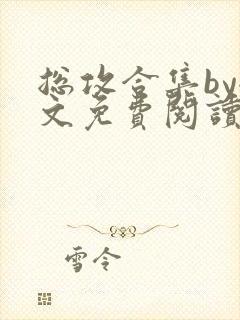 总攻合集by
文免费閱讀
雪令